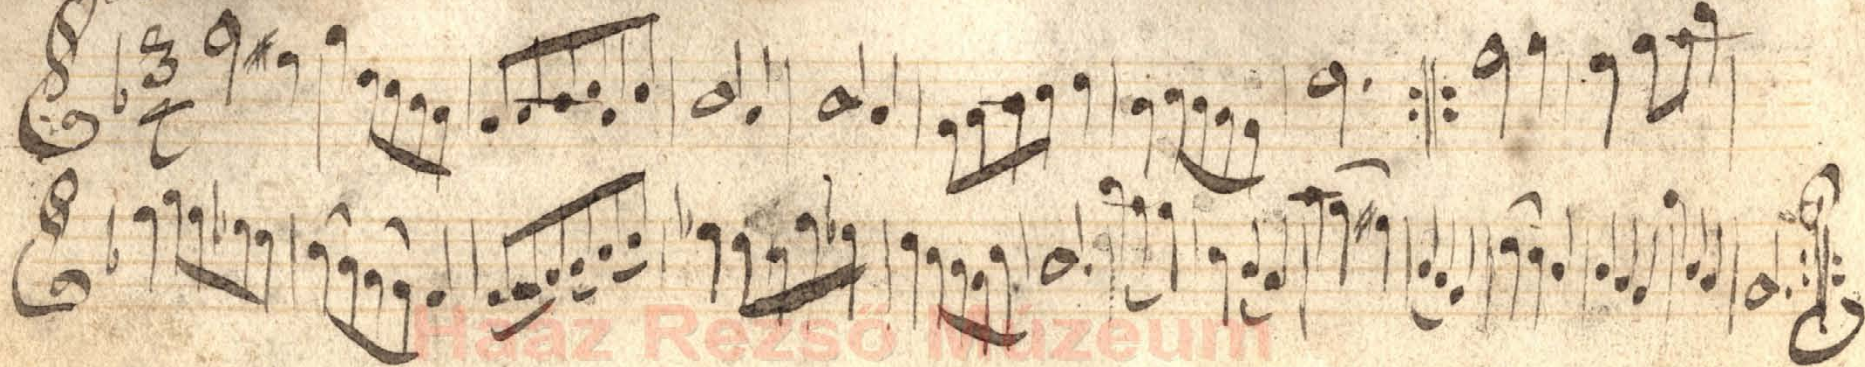 3
Haáz Rezső Múzeum